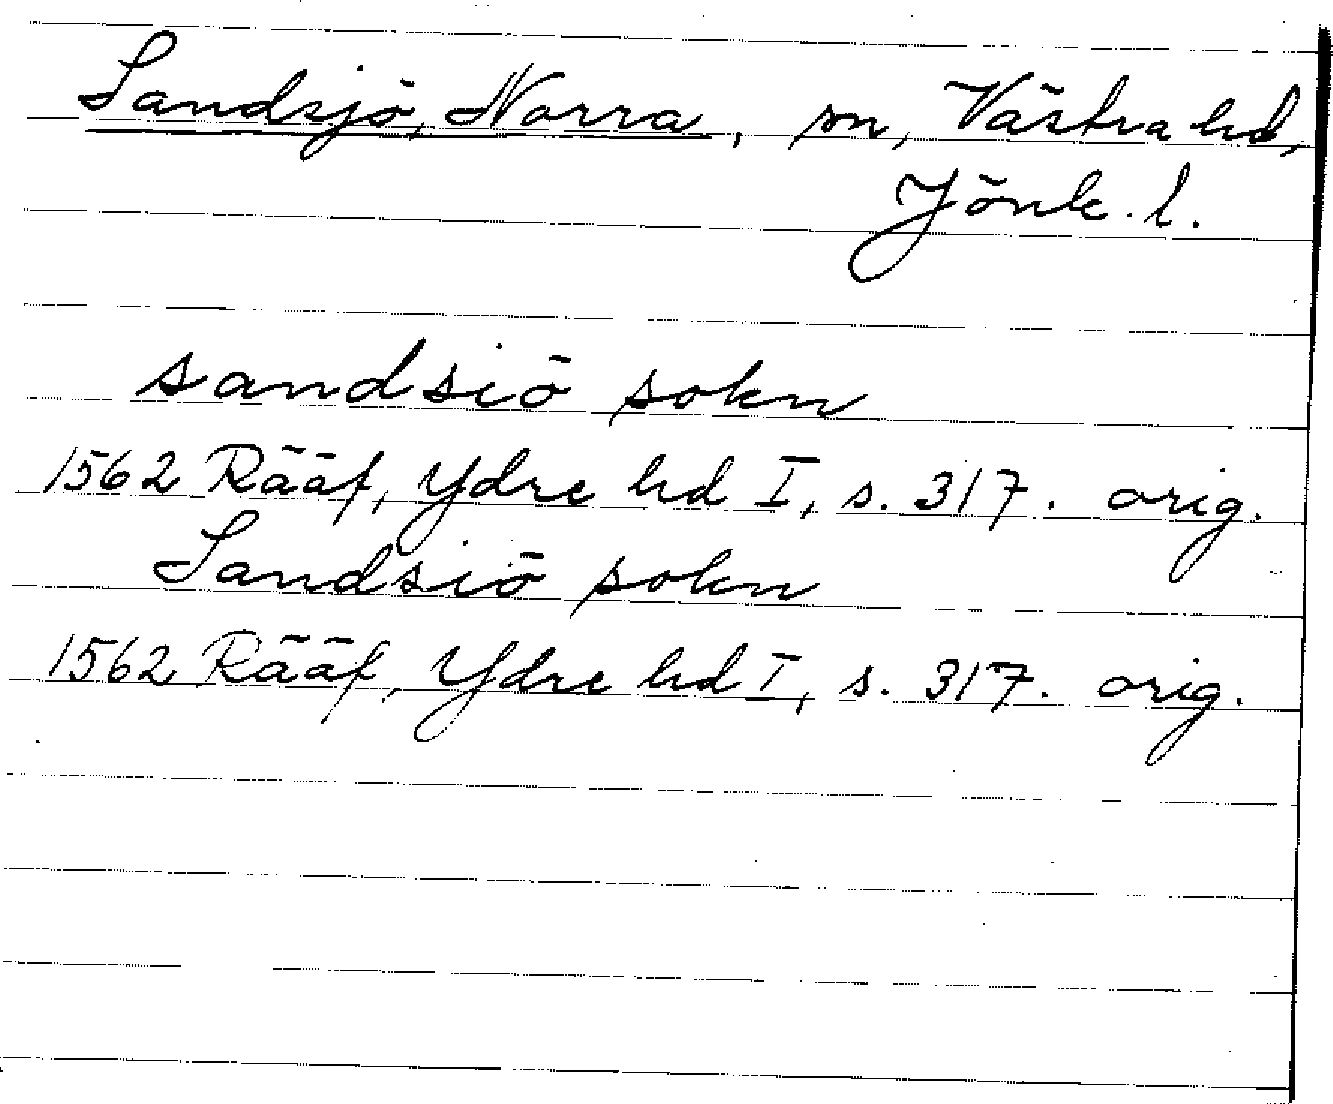 Sandsjö, Norra, sn, Västra hd,
Jönk. l.
sandsiö sokn
1562 Rääf, Ydre hd I, s. 317. orig.
Sandsiö sokn
1562 Rääf, Ydre hd I, s. 317. orig.